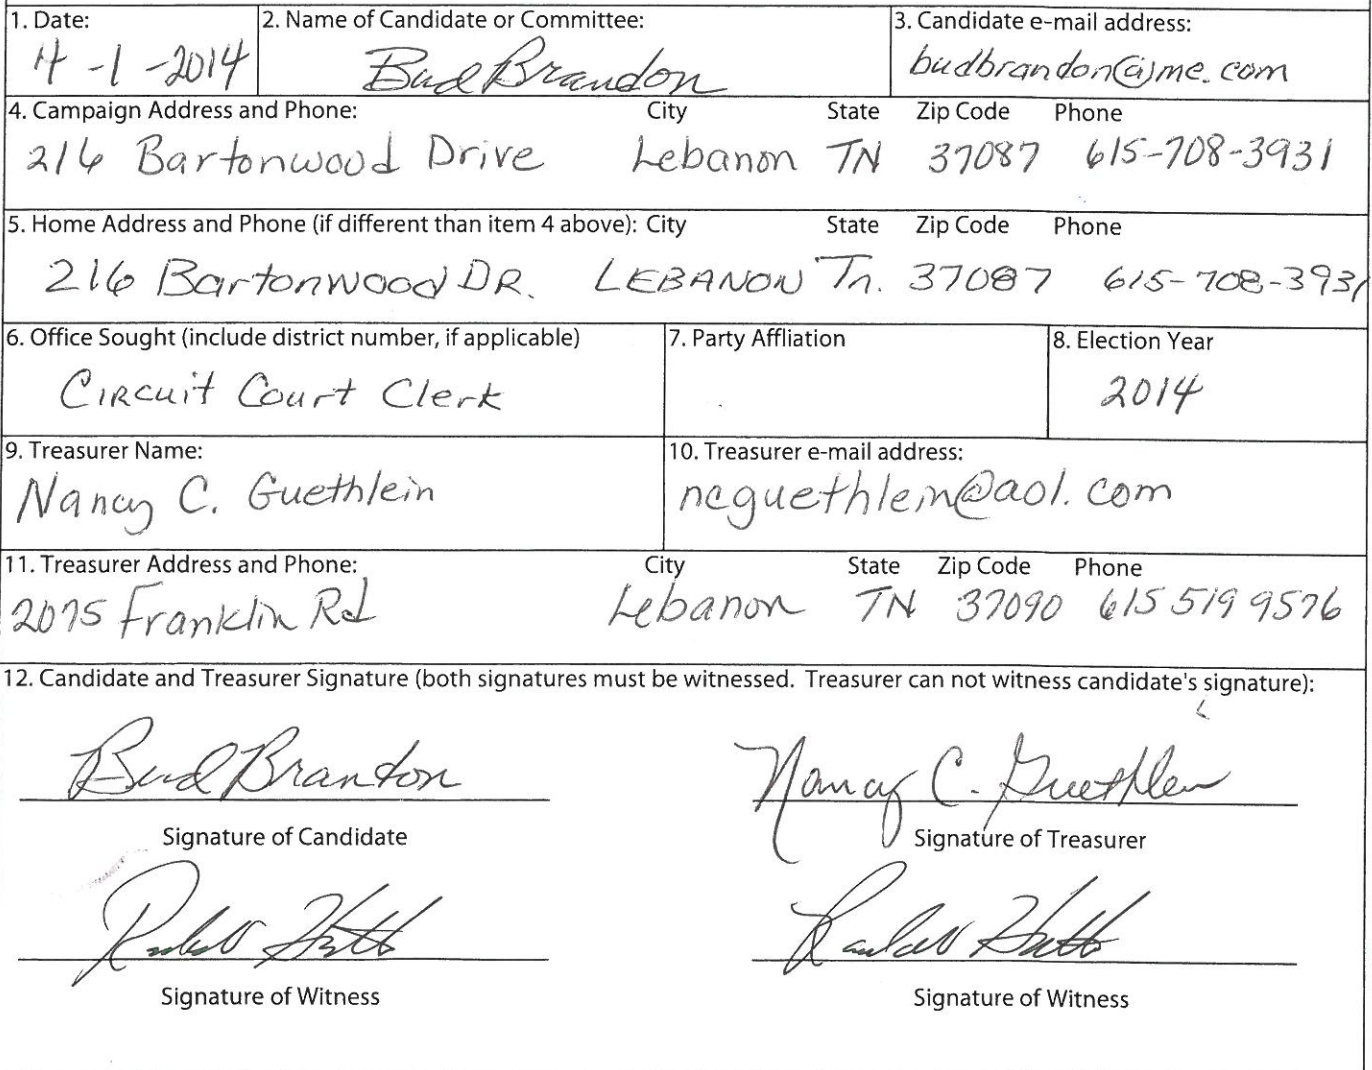 1. Date: 2. Name of Candidate or Committee: 3. Candidate e-mail address:
4-1-2014 Bud Brandon budbrandon@me.com
4. Campaign Address and Phone: City State Zip Code Phone
216 Bartonwood Drive Lebanon TN 37087 615-708-3931
5. Home Address and Phone (if different than item 4 above): City State Zip Code Phone
216 Bartonwood DR. LEBANON Tn. 37087 615-708-3931
6. Office Sought (include district number, if applicable) 7. Party Affliation 8. Election Year
Circuit Court Clerk 2014
9. Treasurer Name: 10. Treasurer e-mail address:
Nancy C. Guethlein ncguethlein@aol.com
11. Treasurer Address and Phone: City State Zip Code Phone
2075 Franklin Rd Lebanon TN 37090 615 519 9576
12. Candidate and Treasurer Signature (both signatures must be witnessed. Treasurer can not witness candidate's signature):
Bud Brandon Nancy C. Guethlein
Signature of Candidate Signature of Treasurer
Signature of Witness Signature of Witness